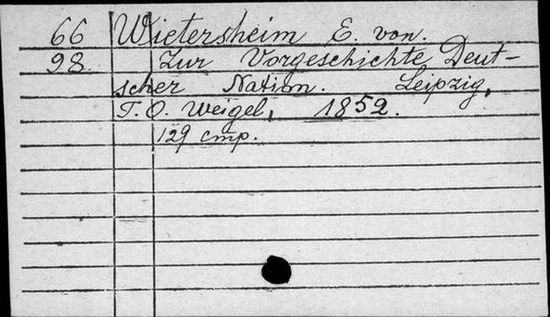 66 Wietersheim E. von.
98 Zur Vorgeschichte Deut-
scher Nation. Leipzig,
T. O. Weigel, 1852.
129 стр.